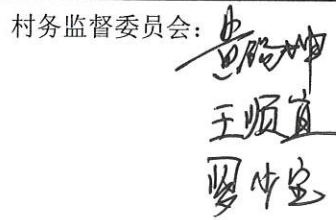 村务监督委员会：黄
王顺宜
罗少宝